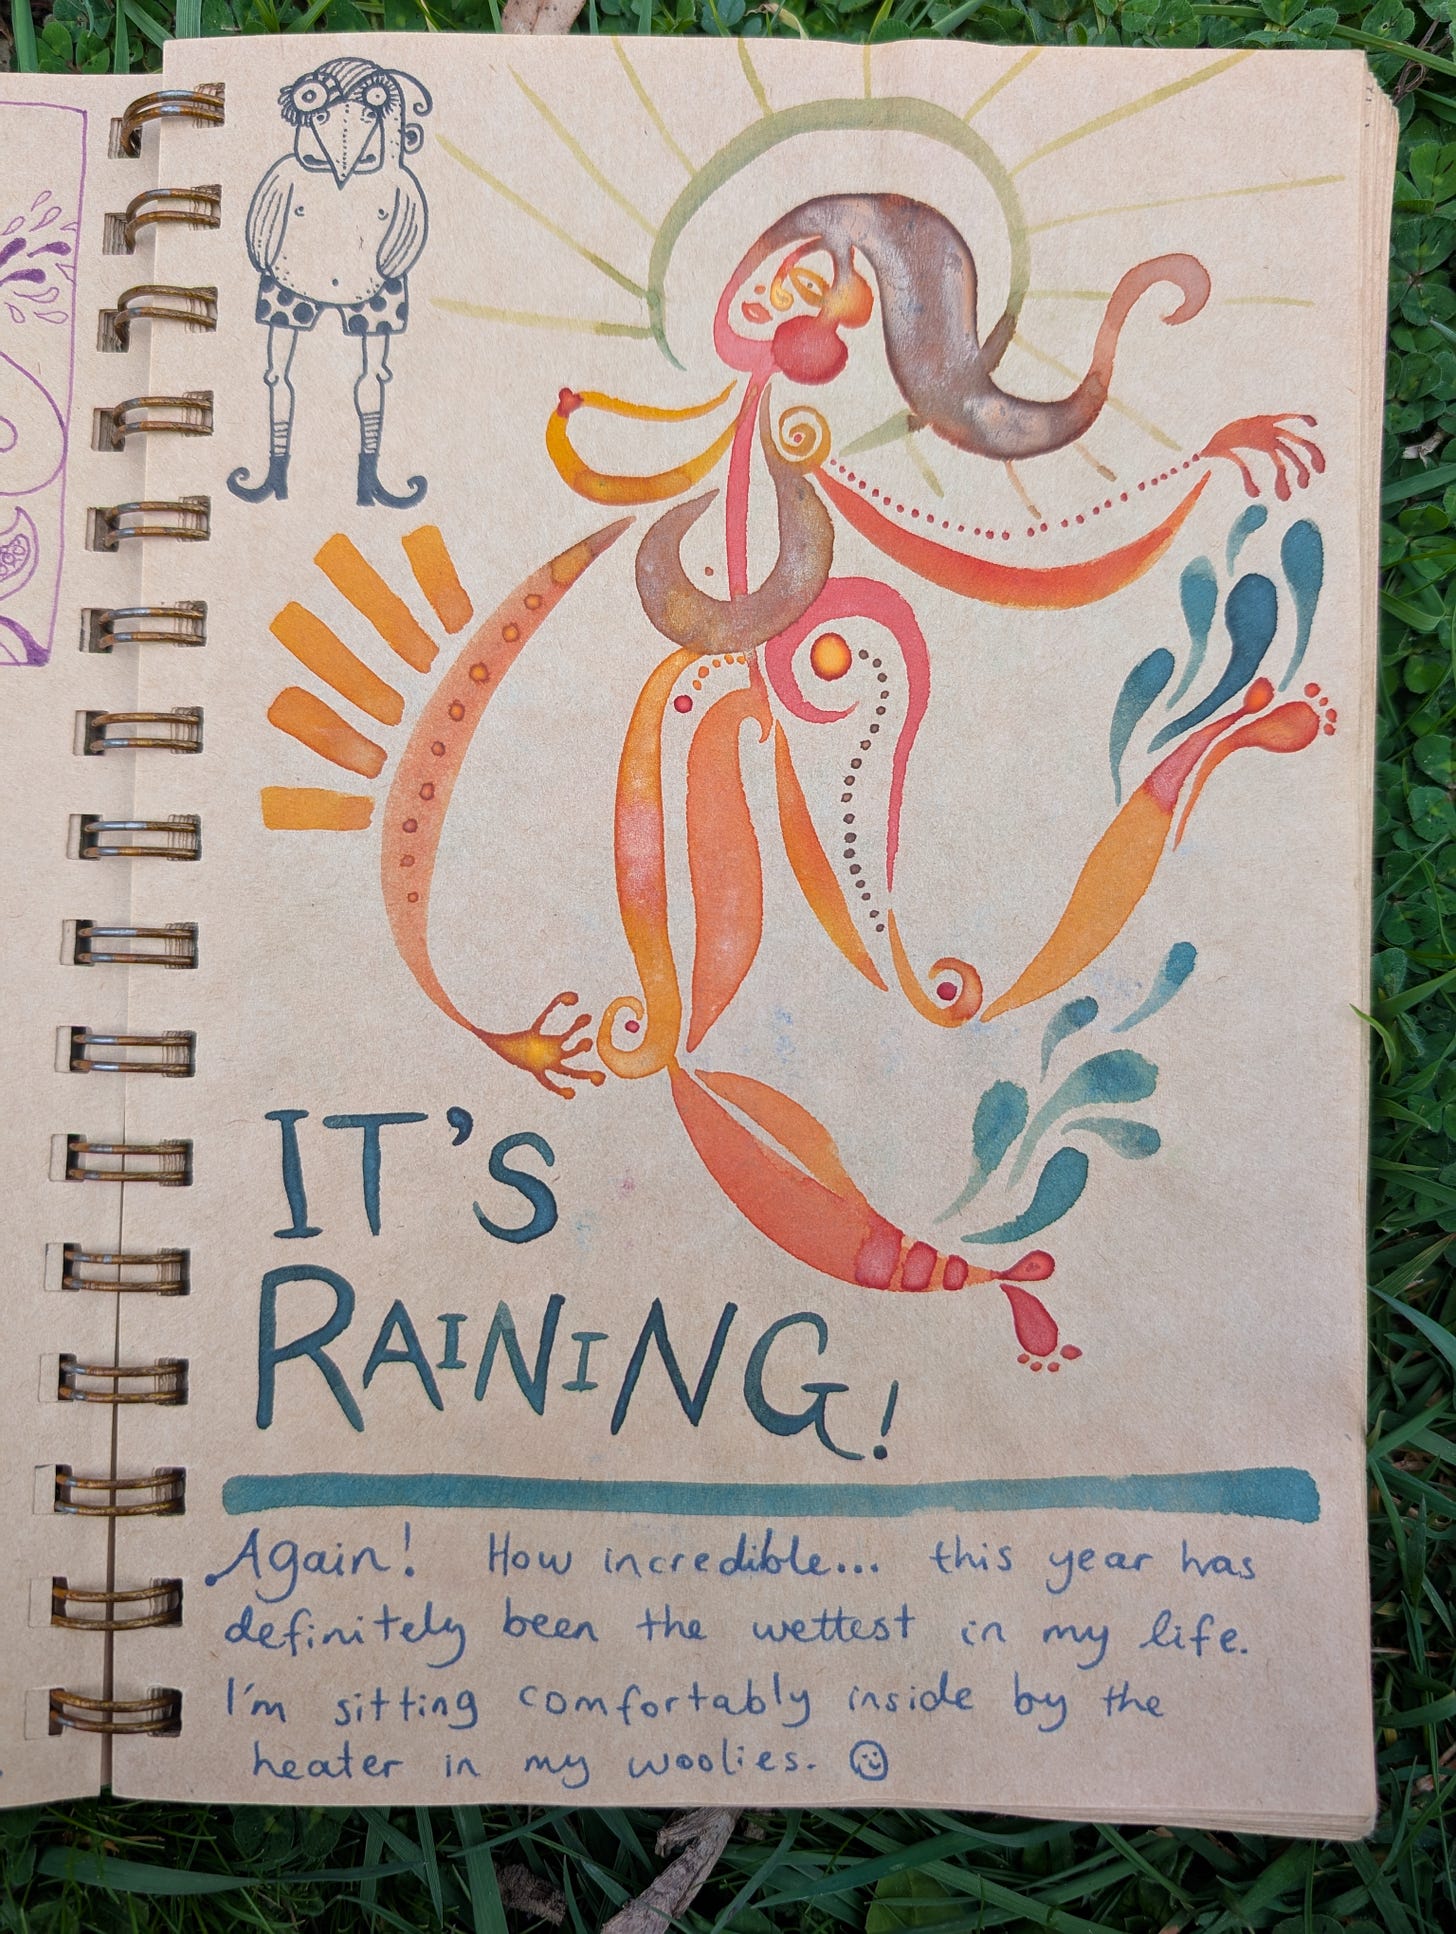 IT'S
RAINING!
Again! How incredible... this year has
definitely been the wettest in my life.
I'm sitting comfortably inside by the
heater in my woolies. ☺